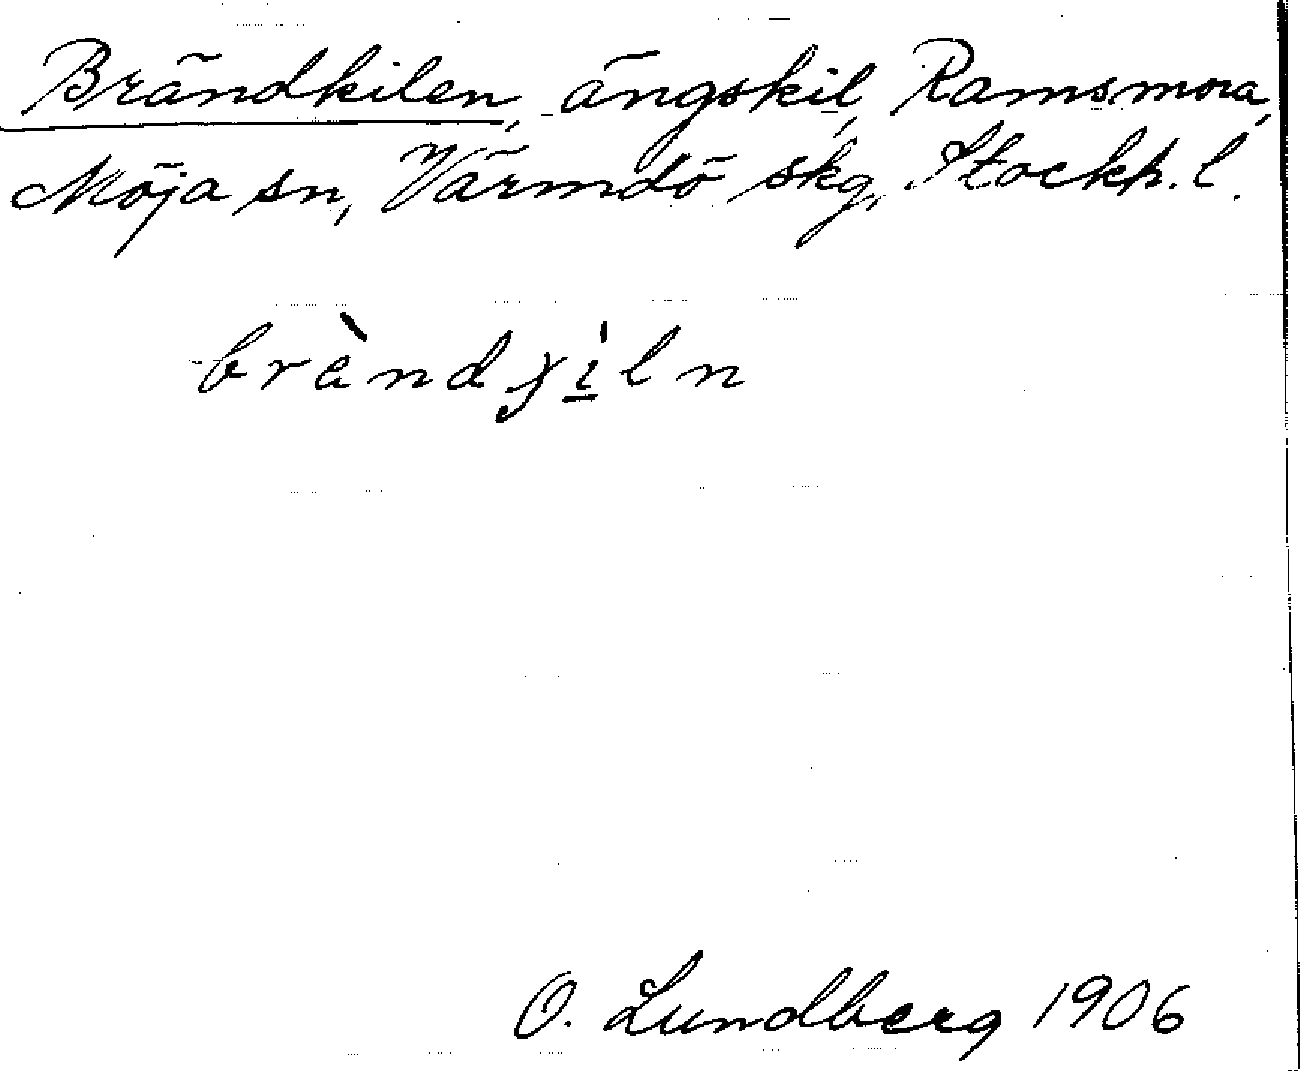 Brändkilen, ängskil, Ramsmora,
Möja sn, Värmdö skg, Stockh. l.
brèndɟíln
O. Lundberg 1906